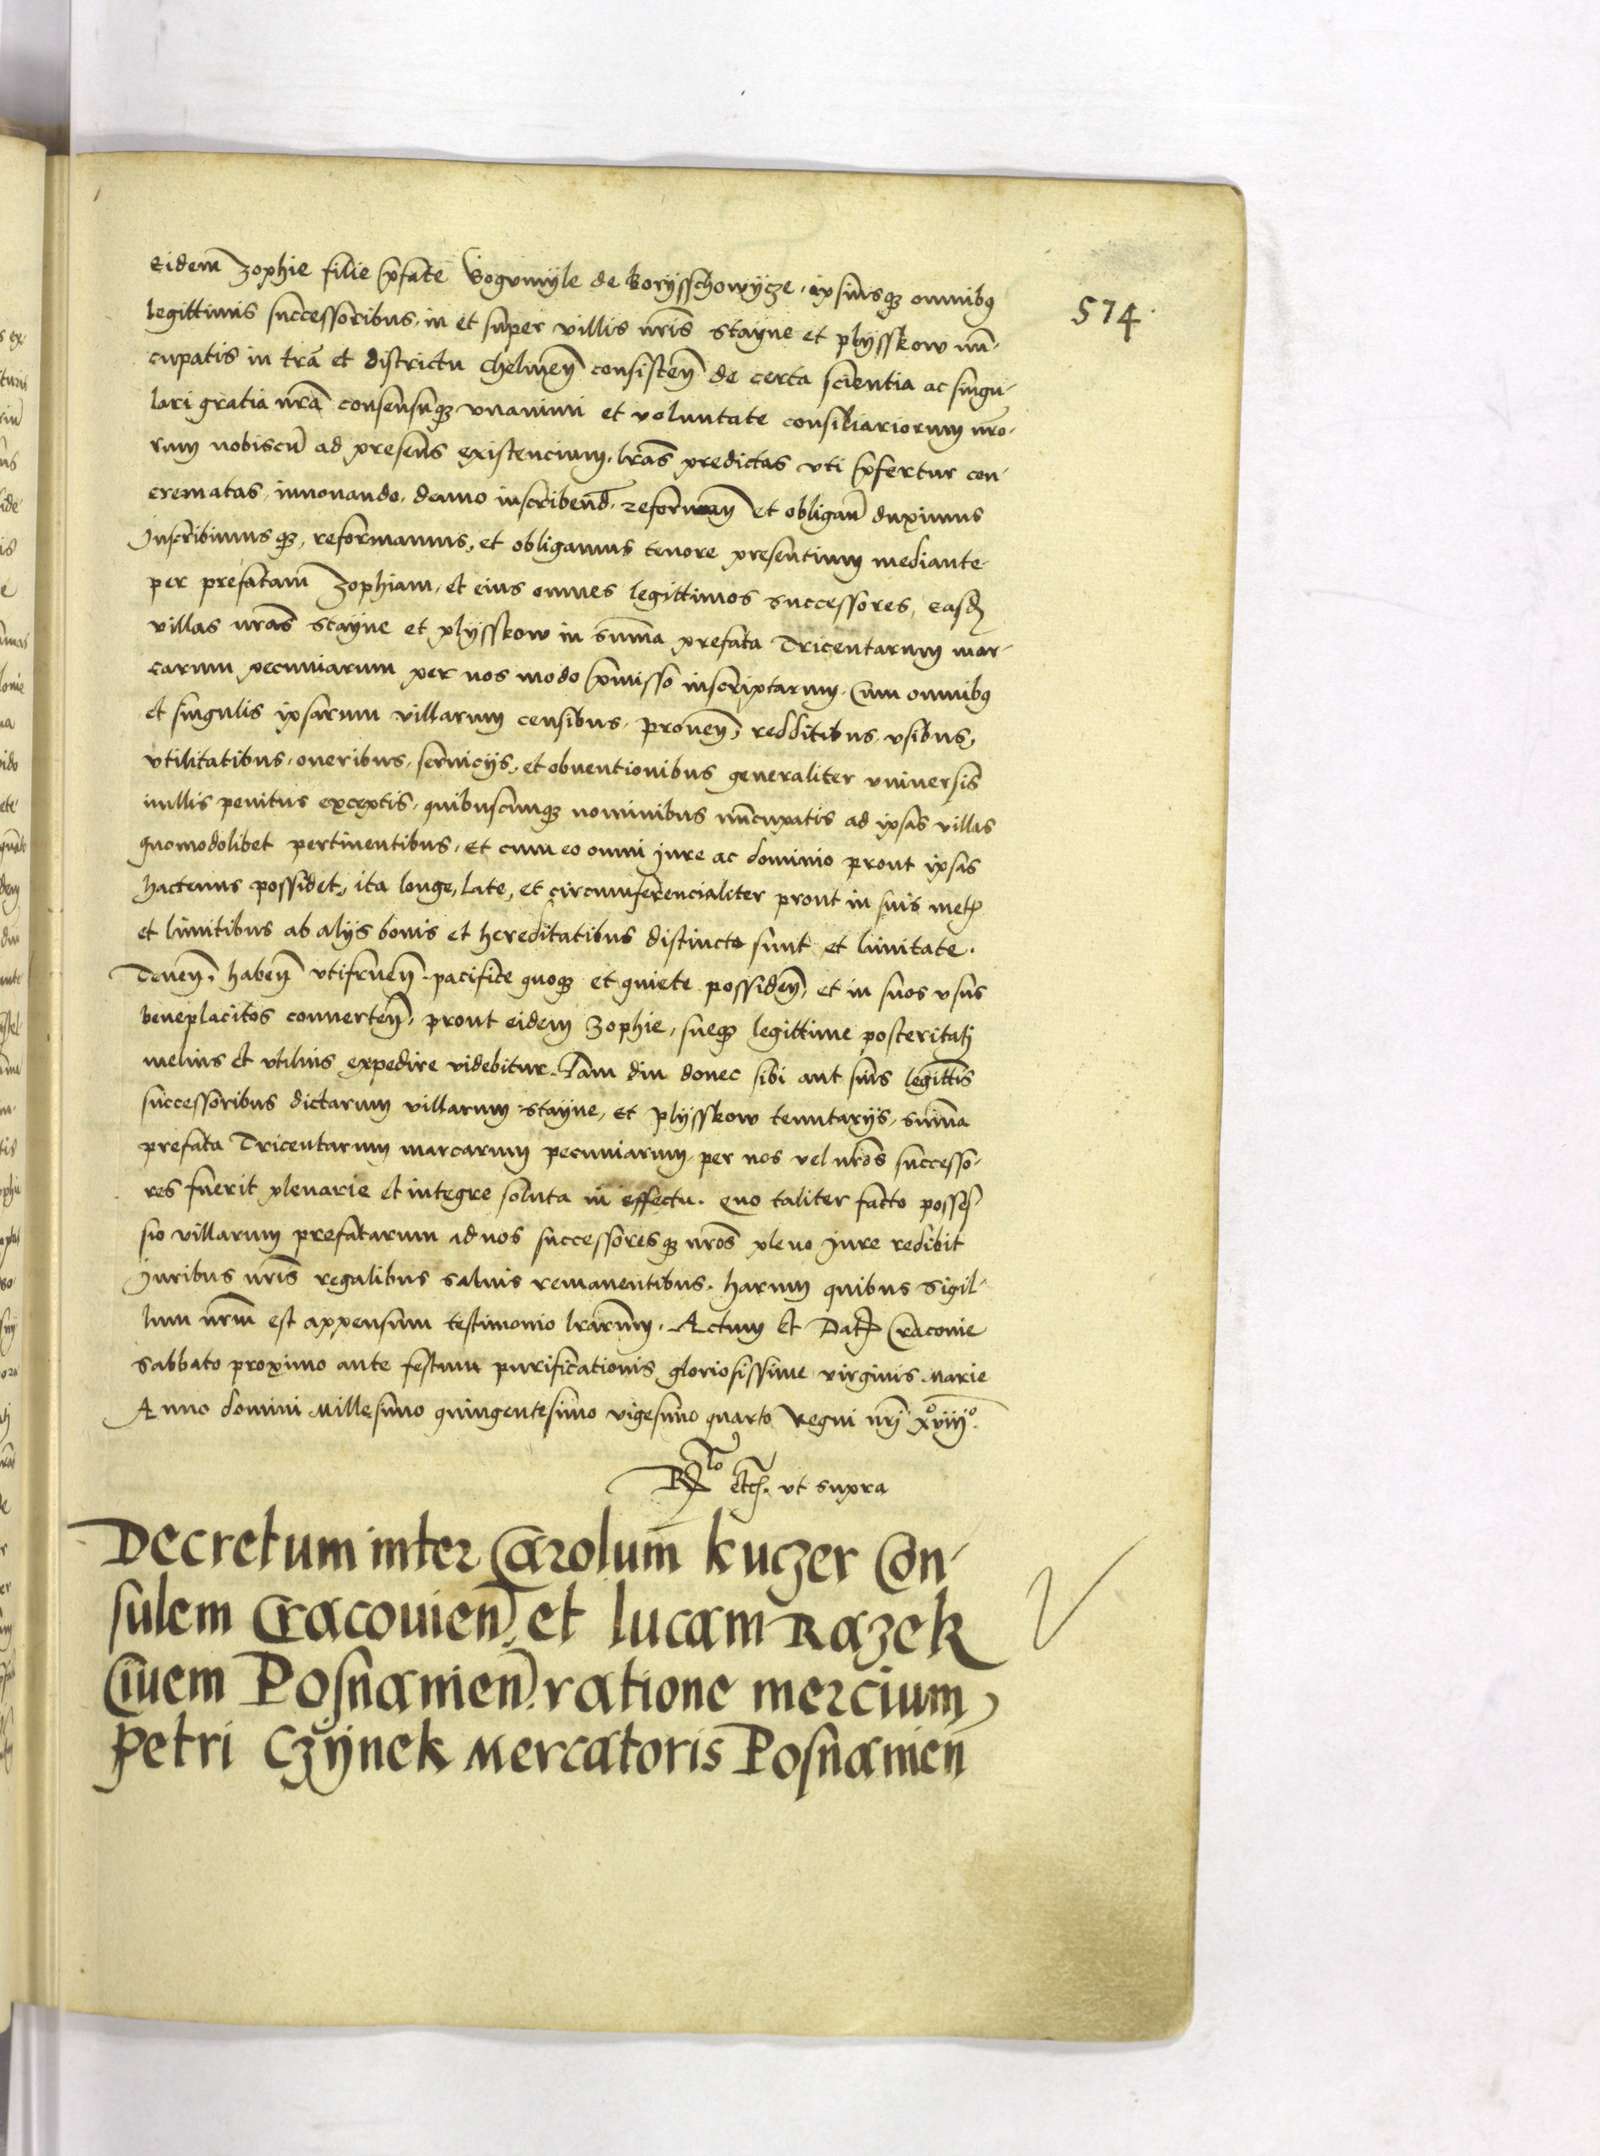 574
Eidem Zophie filie p̃fate Bogumyle de Koryschowycze, ipsiusqȝ omnibꝯ
legittimis successoribus, in et super villis nr̃is stayne et plysskow nũ-
cupatis in tr̃a et districtu Chelmeñ consisteñ de certa scientia ac singu-
lari gratia nr̃a consensuqȝ vnanimi et voluntate consiliariorum nr̃o-
rum nobiscũ ad presens existencium, lr̃as predictas vti p̃fertur con-
crematas, innouando, denuo inscribend̃, reformañ et obligañ duximus
Inscribimusqȝ, reformamus, et obligamus tenore presentium mediante
per prefatam Zophiam, et eius omnes legittimos successores, easd̃
villas nr̃as stayne et plysskow in sum̃a prefata Tricentarum mar-
carum pecuniarum per nos modo p̃misso inscriptarum, Cum omnibꝯ
et singulis ipsarum villarum censibus, proueñ, redditibus, vsibus,
vtilitatibus, oneribus, seruicijs, et obuentionibus generaliter vniuersis
nullis penitus exceptis, quibuscunqȝ nominibus nũcupatis ad ipsas villas
quomodolibet pertinentibus, et cum eo omni jure ac dominio prout ipsas
hactenus possidet, ita longe, late, et circumferencialiter prout in suis metꝭ
et limitibus ab alijs bonis et hereditatibus distincte sunt et limitate.
Teneñ, habeñ vtifrueñ pacifice quoqȝ et quiete possideñ, et in suos vsus
beneplacitos conuerteñ, prout eidem Zophie, sueqȝ legittime posteritati
melius et vtilius expedire videbitur. Tam diu donec sibi aut suis legittĩs
successoribus dictarum villarum stayne, et plysskow tenutarijs, sum̃a
prefata Tricentarum marcarum pecuniarum, per nos vel nr̃os successo-
res fuerit plenarie et integre soluta in effectu. Quo taliter facto posses-
sio villarum prefatarum ad nos successoresqȝ nr̃os pleno jure redibit
Juribus nr̃is regalibus saluis remanentibus. harum quibus Sigil-
lum nr̃m est appensum testimonio lr̃arum. Actum et Datꝭ Cracouie
Sabbato proximo ante festum purificationis gloriosissime virginis Marie
Anno domini Millesimo quingentesimo vigesimo quarto Regni nr̃i xviijᵒ
Rᵗᵒ etc̃. vt supra
Decretum inter Carolum kuczer Con-
sulem Cracouieñ, et lucam Razek
Ciuem Posnanieñ ratione mercium
Petri Czynek Mercatoris Posnanieñ